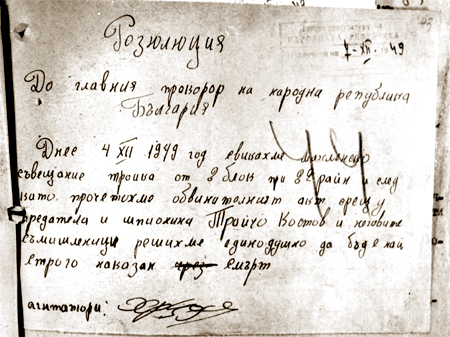 Резюлюция
7-XII 1949
До главния прокорор на народна република
България
Днес 4 XII 1949 год свикахме
съвещание тройка от 2 блок при 22 район и след
като прочетохме обвинителният акт срещу
предателя и шпионина Трайчо Костов и неговите
съмишленици решихме единодушно да бъде най
строго наказан чрез смърт
агитатори: